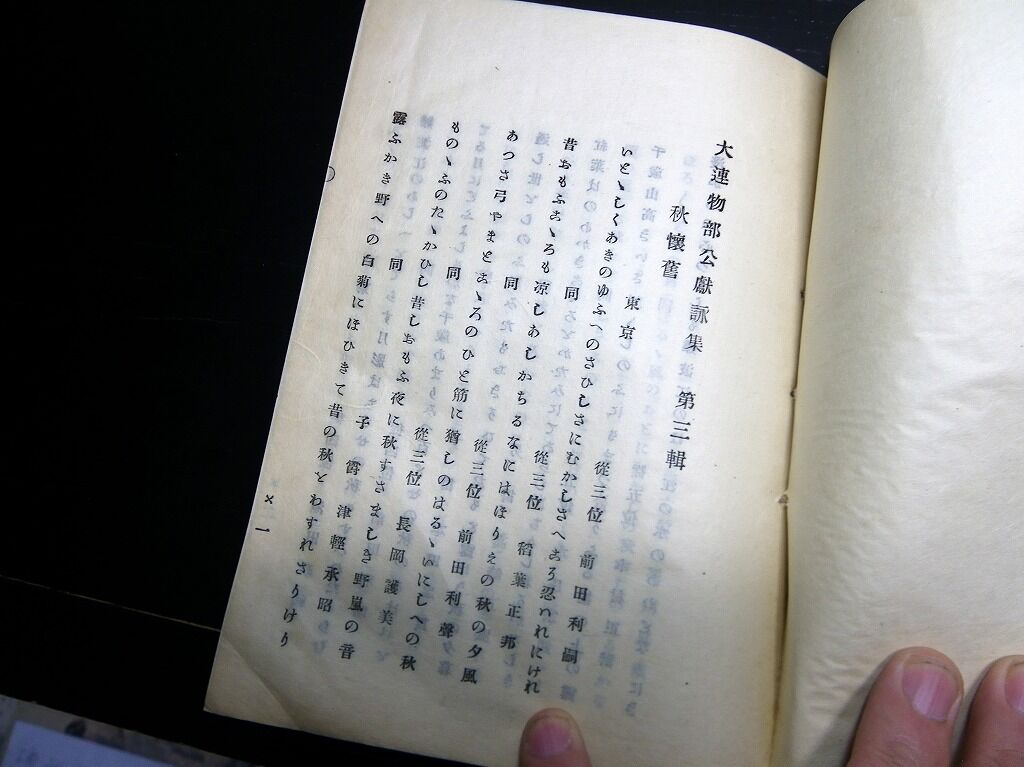 大連物部公獻詠集　第三輯
秋懷舊
東京　從三位　前田利嗣
いとゝしくあきのゆふへのさひしさにむかしさへあろ忍ハれにけれ
同　從三位　稻葉正邦
昔おもふあゝろも凉しあしかちるなにはほりえの秋の夕風
同　從三位　前田利聲
あつさ弓やまとあゝろのひと筋に猶しのはるゝいにしへの秋
同　從三位　長岡護美
ものゝふのたゝかひし昔しおもふ夜に秋すさましき野嵐の音
同　子爵　津輕承昭
露ふかき野への白菊にほひきて昔の秋とわすれさりけり
一